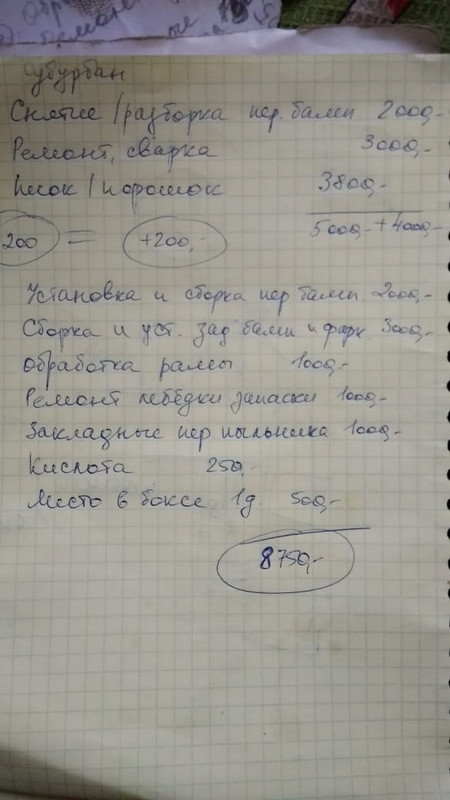 Субурбан
Снятие/разборка пер. бамп 2000,-
Ремонт, сварка 3000,-
Песок/порошок 3800,-
200 = +200,- 5000,- + 4000,-
Установка и сборка пер бамп. 2000,-
Сборка и уст. зад бамп и фарк. 3000,-
Обработка рамы 1000,-
Ремонт лебёдки запаски 1000,-
Закладные пер пыльника 1000,-
Кислота 250,-
Место в боксе 1д. 500,-
8750,-